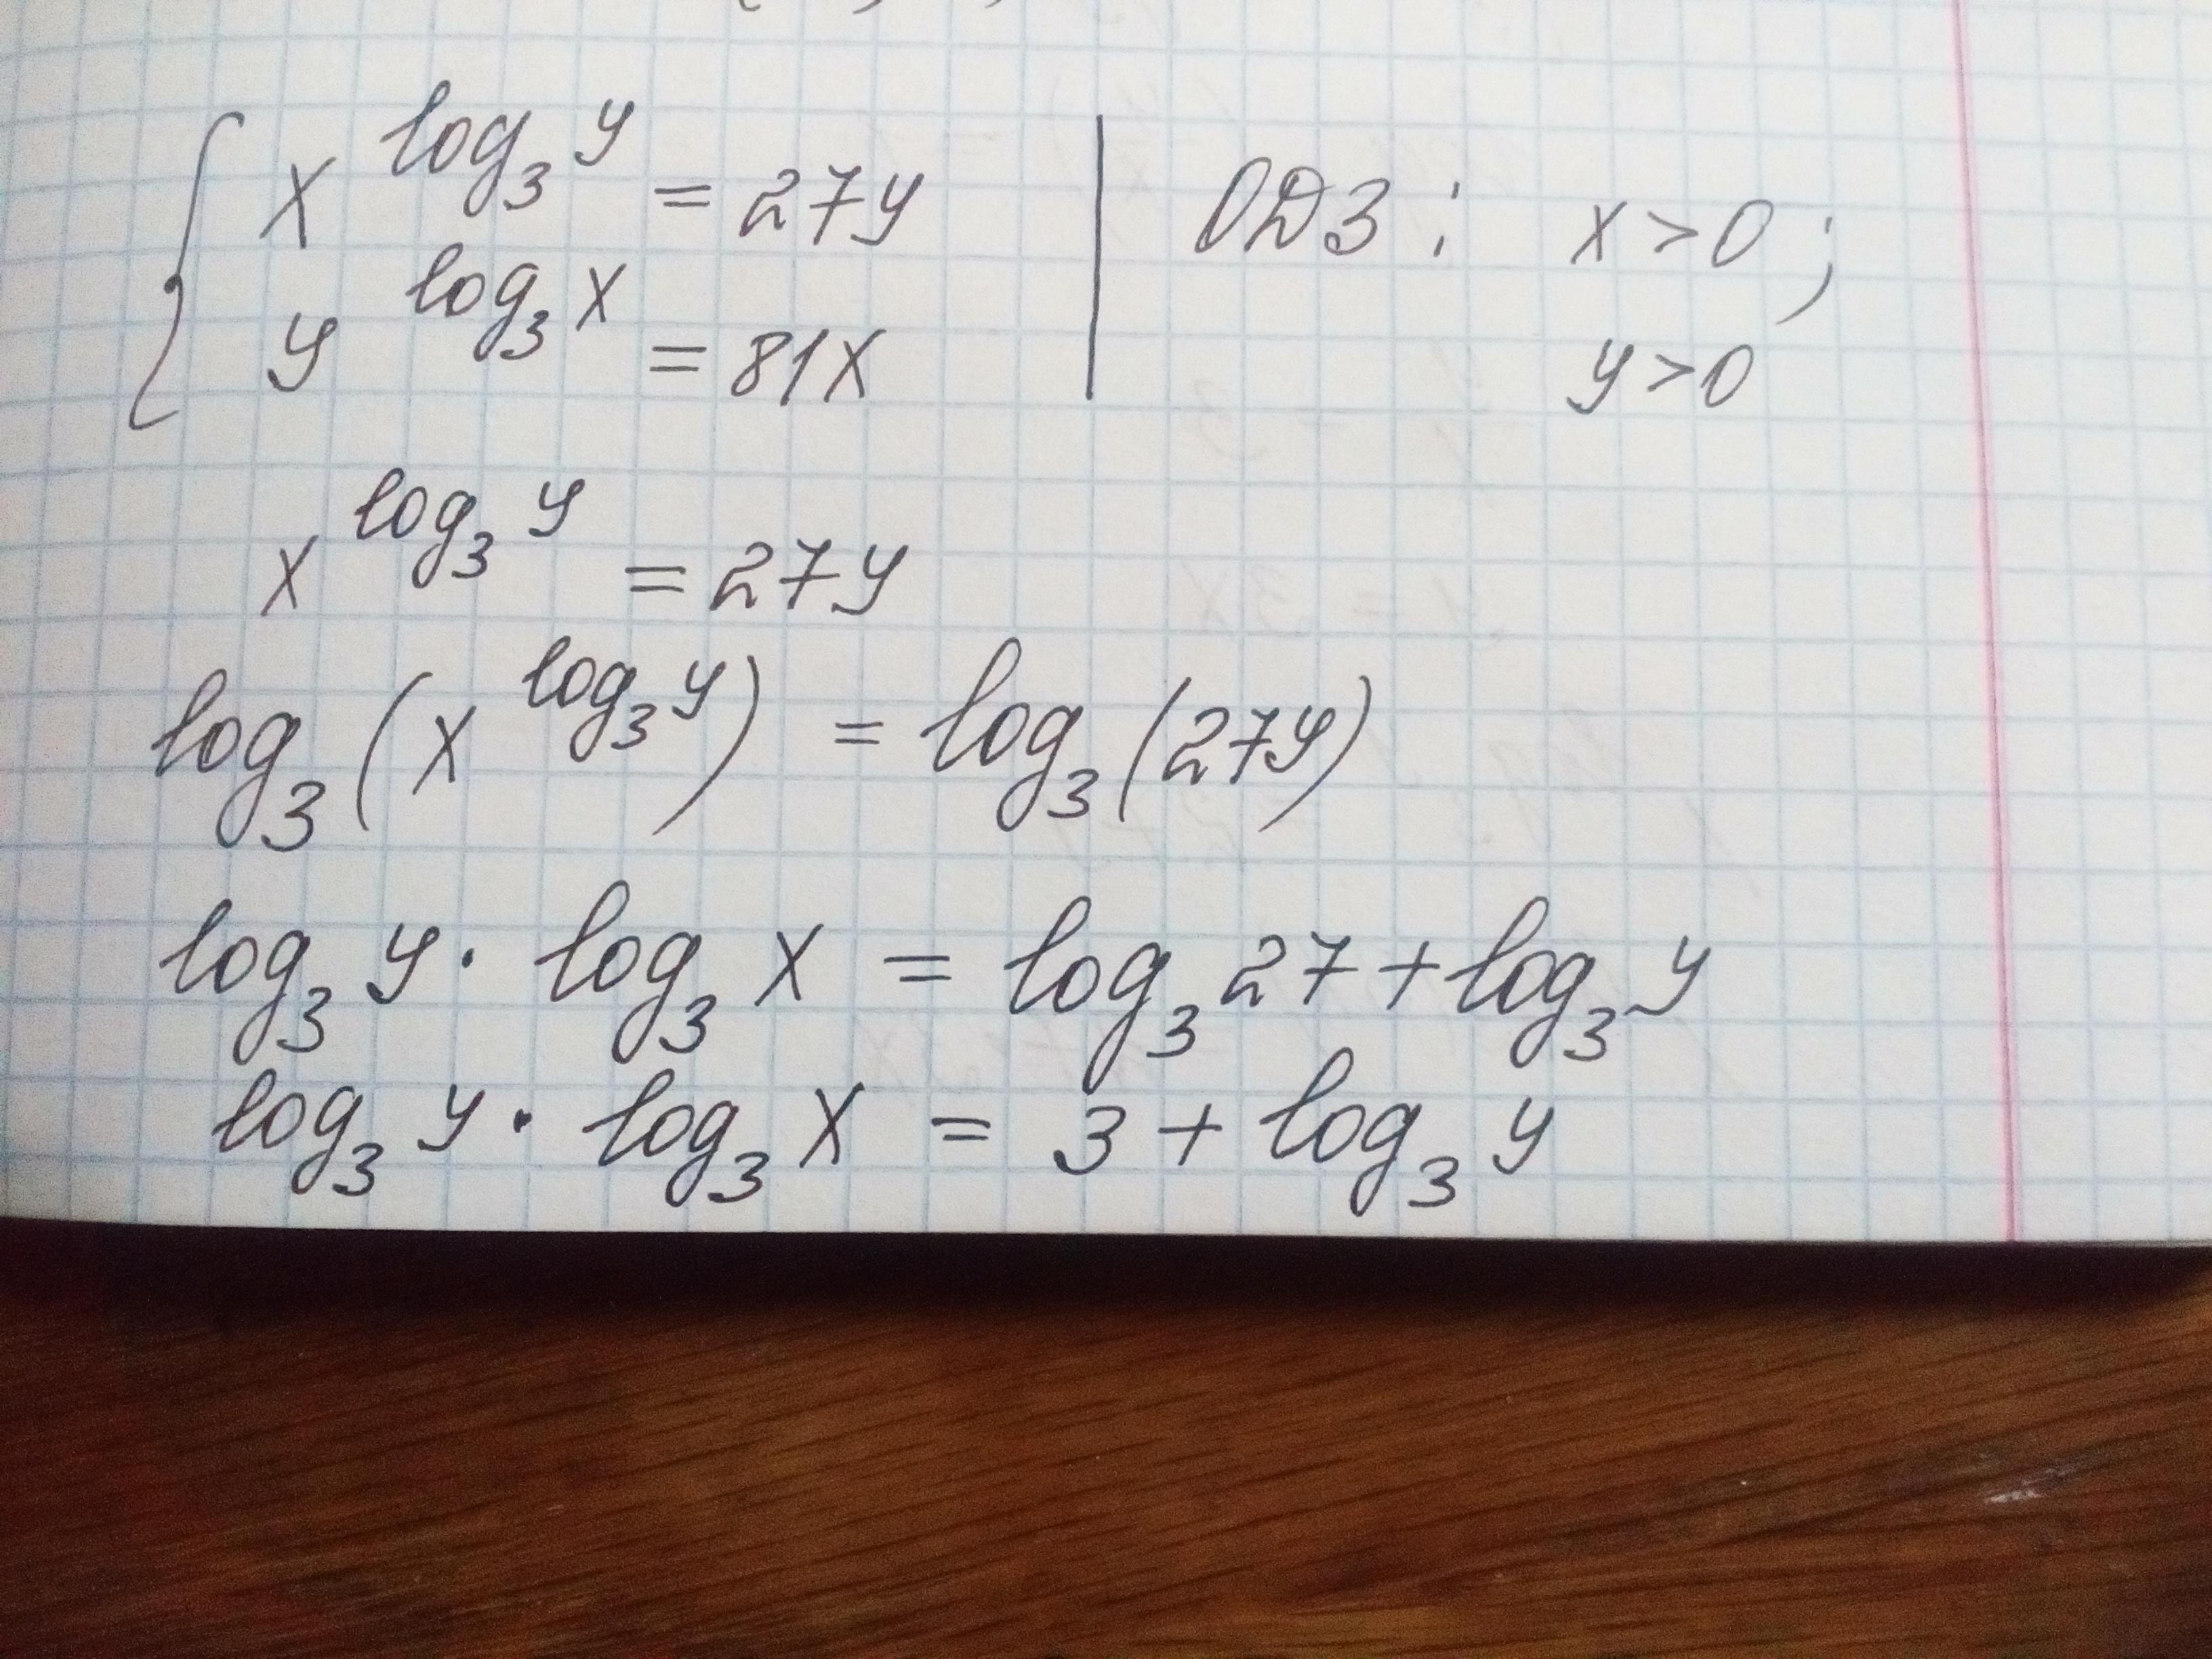 x^{log_3 y} = 27y | ОДЗ: x > 0;
y^{log_3 x} = 81x | y > 0
x^{log_3 y} = 27y
log_3 (x^{log_3 y}) = log_3 (27y)
log_3 y · log_3 x = log_3 27 + log_3 y
log_3 y · log_3 x = 3 + log_3 y